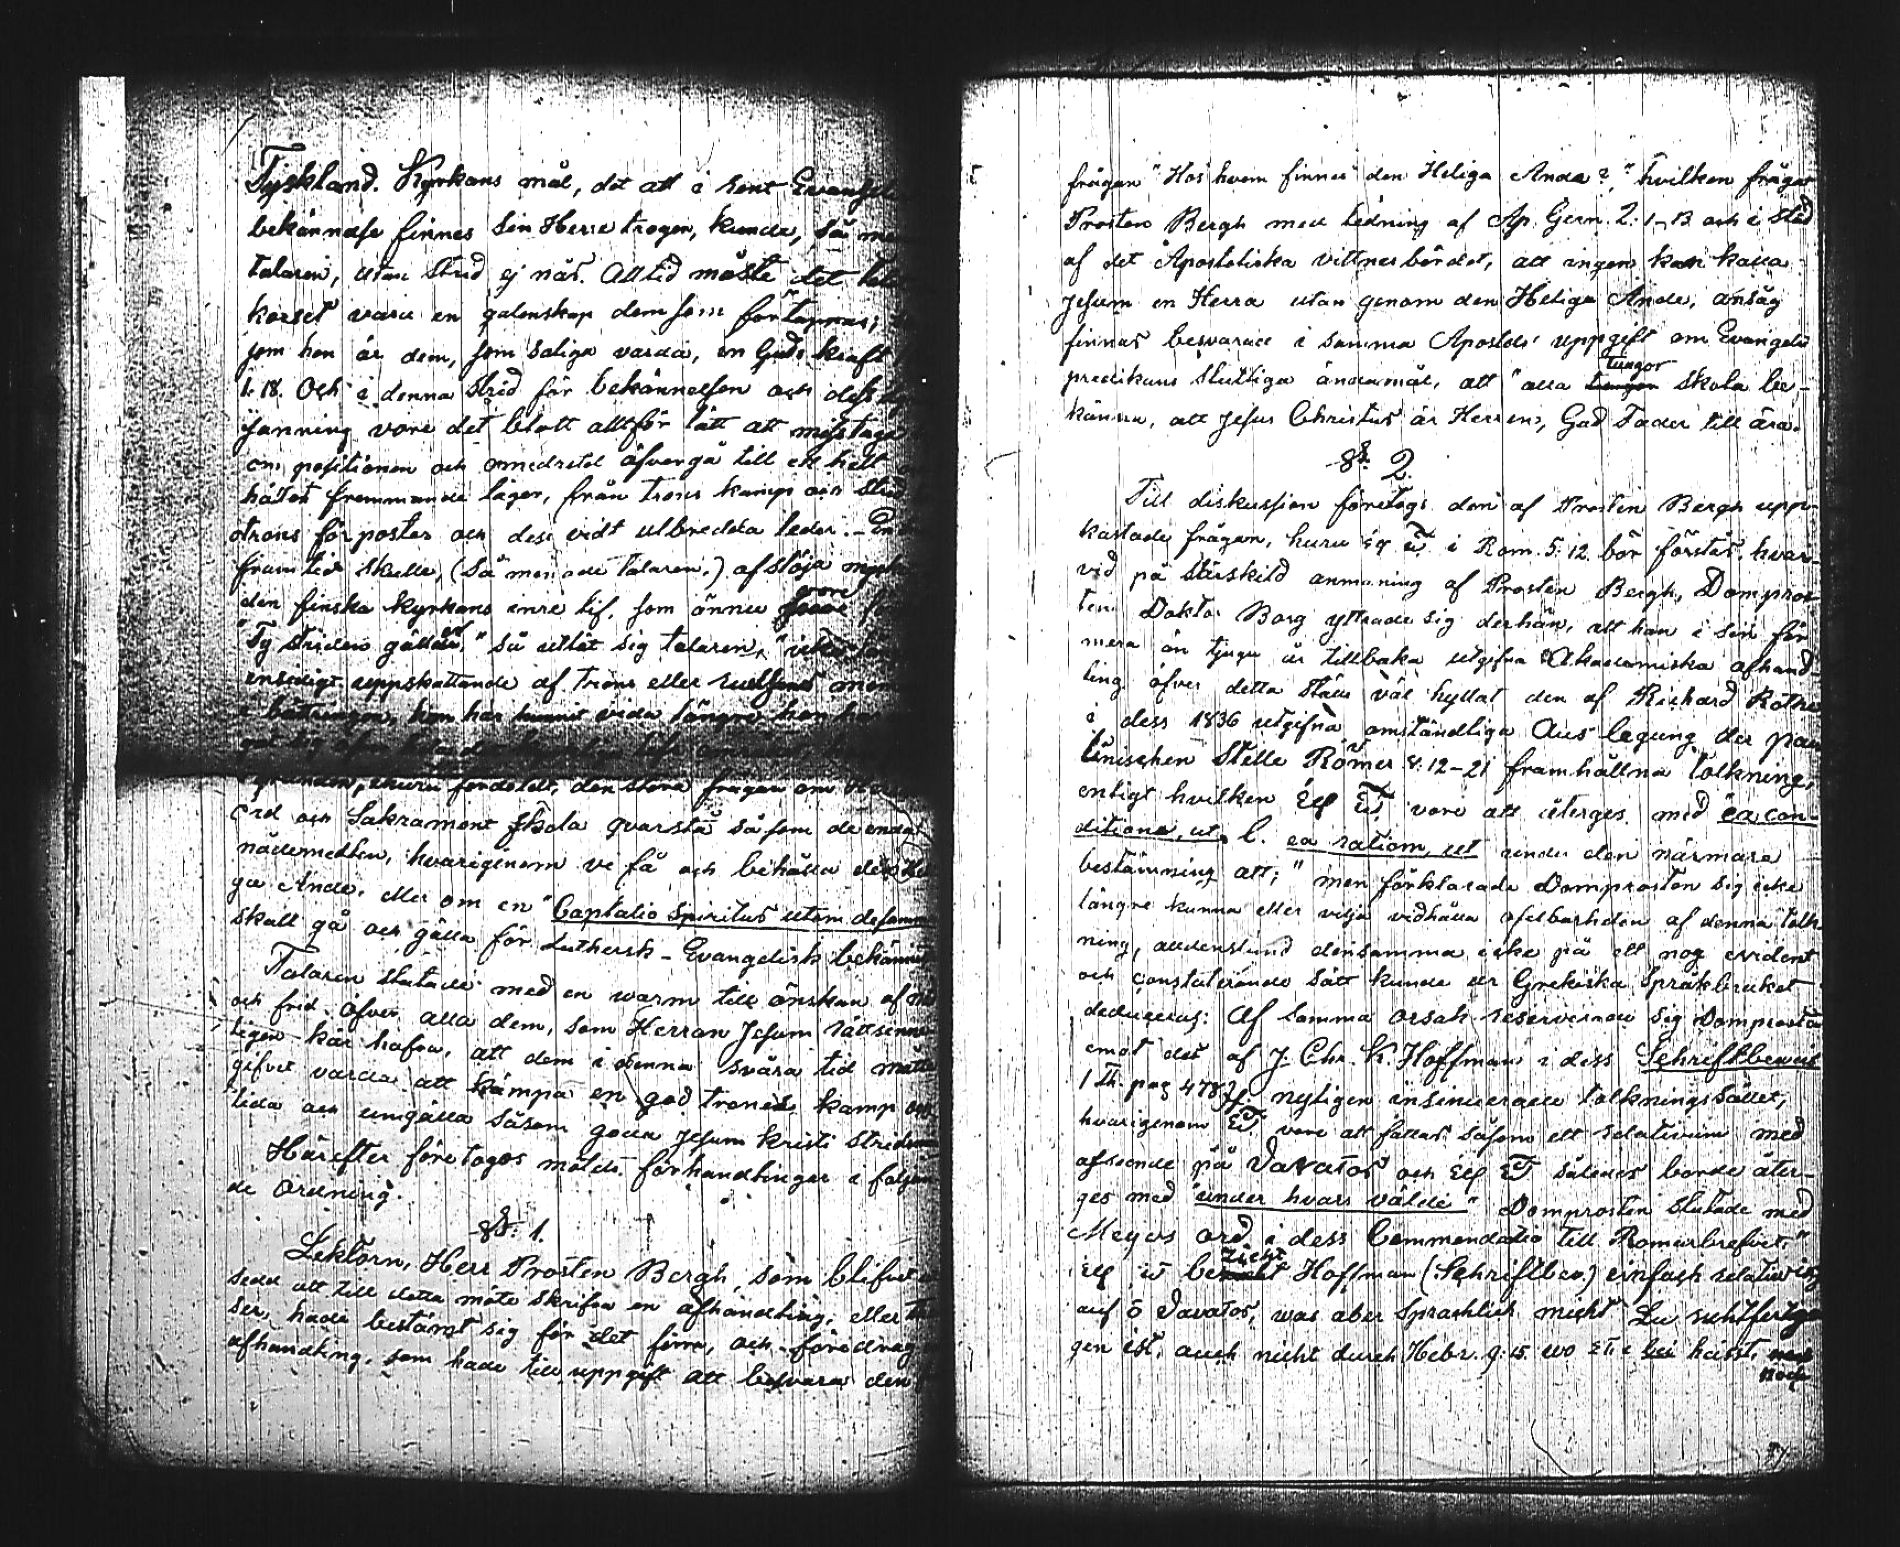 Tyskland. Kyrkans mål, det att i sent Evangel
bekännelse finnes sin Herre trogen, kunde, så me
talaren, utan strid ej nås. Alltid måste det
korset vara en galenskap dem som förtappas,
som hon är dem, som saliga varda, en Guds kraft
1: 18. Och i denna strid för bekännelsen och dess
vore det blott alltför lätt att misstaga
om positionen och omedvetet öfvergå till ett helt
håttet fremmande läger, från trons kamp och
otrons förposter och dess vidt utbredda leder. – En
framtid skulle, (så menade talaren,) afslöja
den finska kyrkans inre lif, som ännu vore
"Ty striden gäller," så utlät sig talaren,
ensidigt uppskattande af trons eller
har vida längre hon har
fördold, den stora frågan om
ord och Sakrament skola qvarstå såsom de enda
nådemedlen, hvarigenom vi få och behålla den
ga Ande, eller om en "Captatio Spiritus utom desamma
skall gå och gälla för Luthersk-Evangelisk bekännel
Talaren slutade med en warm till önskan af nå
och frid öfver alla dem, som Herran Jesum rättsinne
ligen kär hafva, att dem i denna svåra tid måtte
gifvet varda att kämpa en god trones kamp och
lida och umgälla såsom goda Jesum Kristi stridsm
Härefter företogos mötets förhandlingar i följan
de ordning.
§. 1.
Lektorn, Herr Prosten Bergh, som blifvit
sedd att till detta möte skrifva en afhandling, eller
ser, hade bestämt sig för det förra, och föredrag
afhandling, som hade till uppgift att besvara den
frågan "Hos hvem finnes den Heliga Anda?" hvilken fråga
Prosten Bergh med ledning af Ap. Gern. 2: 1–13 och i stöd
af det Apostoliska vittnesbördet, att ingen kan kalla
Jesum en Herra utan genom den Heliga Ande, ansåg
finnas besvarad i samma Apostels uppgift om Evangelii
predikans slutliga ändamål, att "alla tungor skola be-
känna, att Jesus Christus är Herren, Gud Fader till ära.
§. 2.
Till diskussion företogs den af Prosten Bergh upp-
kastade frågan, huru ἐφ᾽ ᾧ i Rom. 5: 12. bör förstås, hvar-
vid på särskild anmaning af Prosten Bergh, Dompros-
ten Doktor Borg yttrade sig derhän, att han i sin för
mera än tjugu år tillbaka utgifna Akademiska afhand-
ling öfver detta ställe väl hyllat den af Richard Rothe
i dess 1836 utgifna omständliga Auslegung der pau
linischen Stelle Römer 8: 12–21 framhållna tolkning,
enligt hvilken ἐφ᾽ ᾧ vore att återges med ea con-
ditione, ut, l. ea ration, ut under den närmare
bestämning att;" men förklarade Domprosten sig icke
längre kunna eller vilja vidhålla ofelbarheten af denna tolk-
ning, alldenstund densamma icke på ett nog evident
och constaterande sätt kunde ur Grekiska Språkbruket
deduceras: Af samma orsak reserverade sig Domprosten
emot det af J. Chr. K. Hoffman i dess Schriftbeweis
1 Th. pag 478 nyligen insinuerade tolkningssättet,
hvarigenom ᾧ vore att fattas såsom ett relativum med
afseende på θανατος och ἐφ᾽ ᾧ således borde åter-
ges med "under hvars välde" Domprosten slutade med
Meyers ord i dess Commendatio till Romarbrefvet:"
ἐφ᾽ ᾧ bezieht Hoffman (Schriftbew.) einfach relativisch
auf ὁ θανατος, was aber Sprachlich nicht zu rechtfertig
gen ist, auch nicht durch Hebr. 9: 15. wo ἐπι bei heisst,
noch